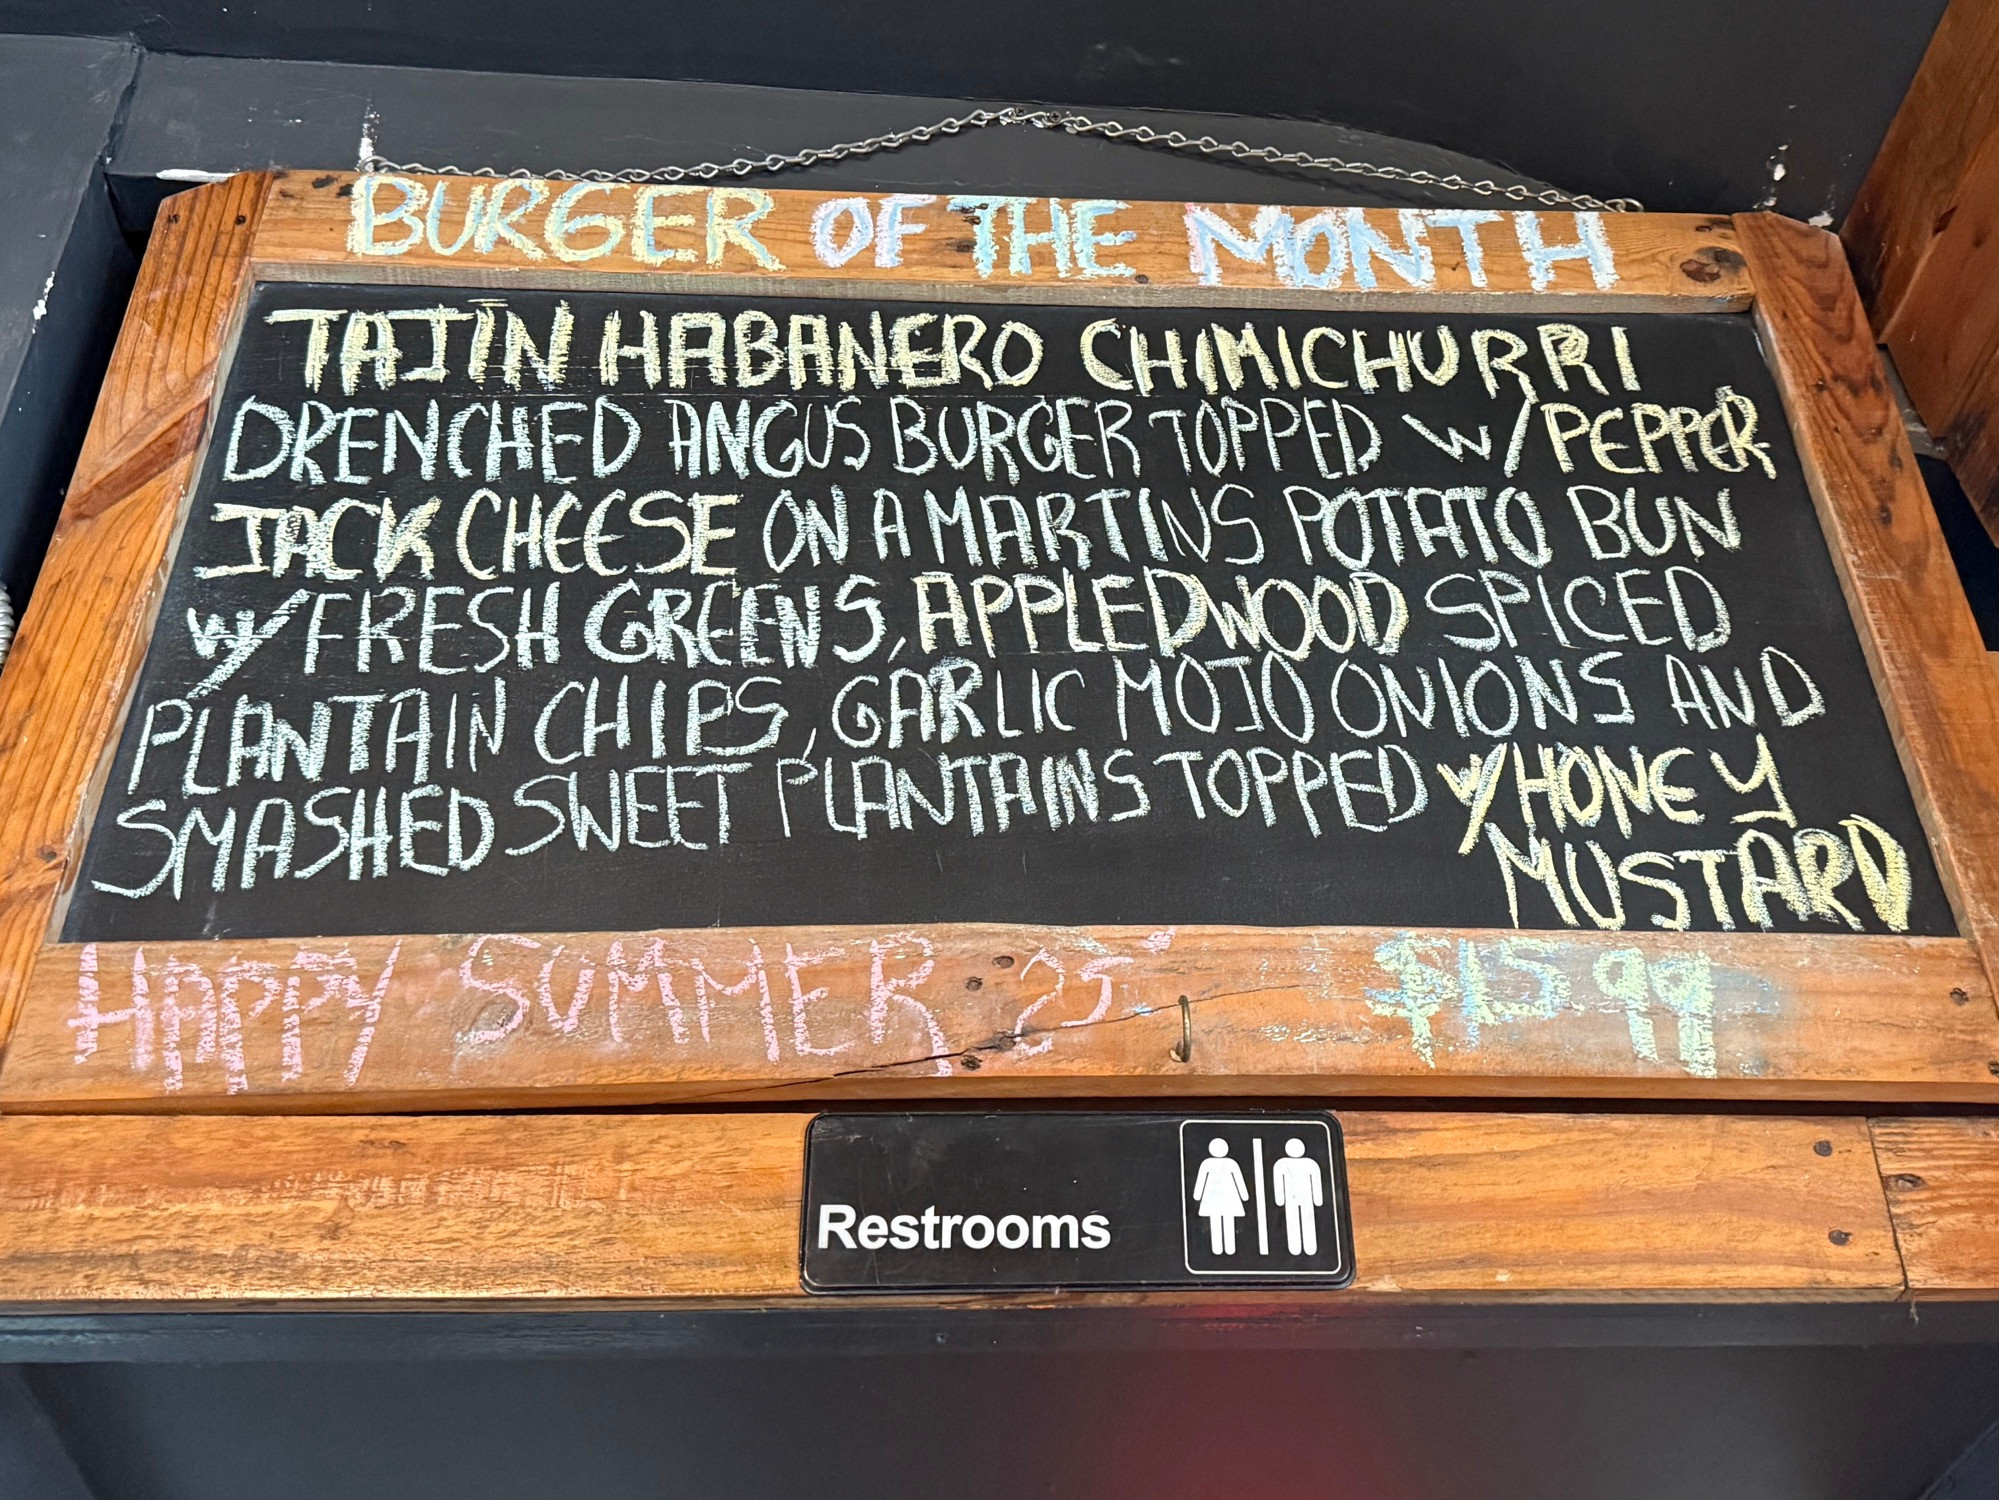 BURGER OF THE MONTH
TAJÍN HABANERO CHIMICHURRI
DRENCHED ANGUS BURGER TOPPED W/PEPPER
JACK CHEESE ON A MARTINS POTATO BUN
W/FRESH GREENS, APPLEDWOOD SPICED
PLANTAIN CHIPS, GARLIC MOJO ONIONS AND
SMASHED SWEET PLANTAINS TOPPED W/HONEY
MUSTARD
HAPPY SUMMER 25' $15.99
Restrooms